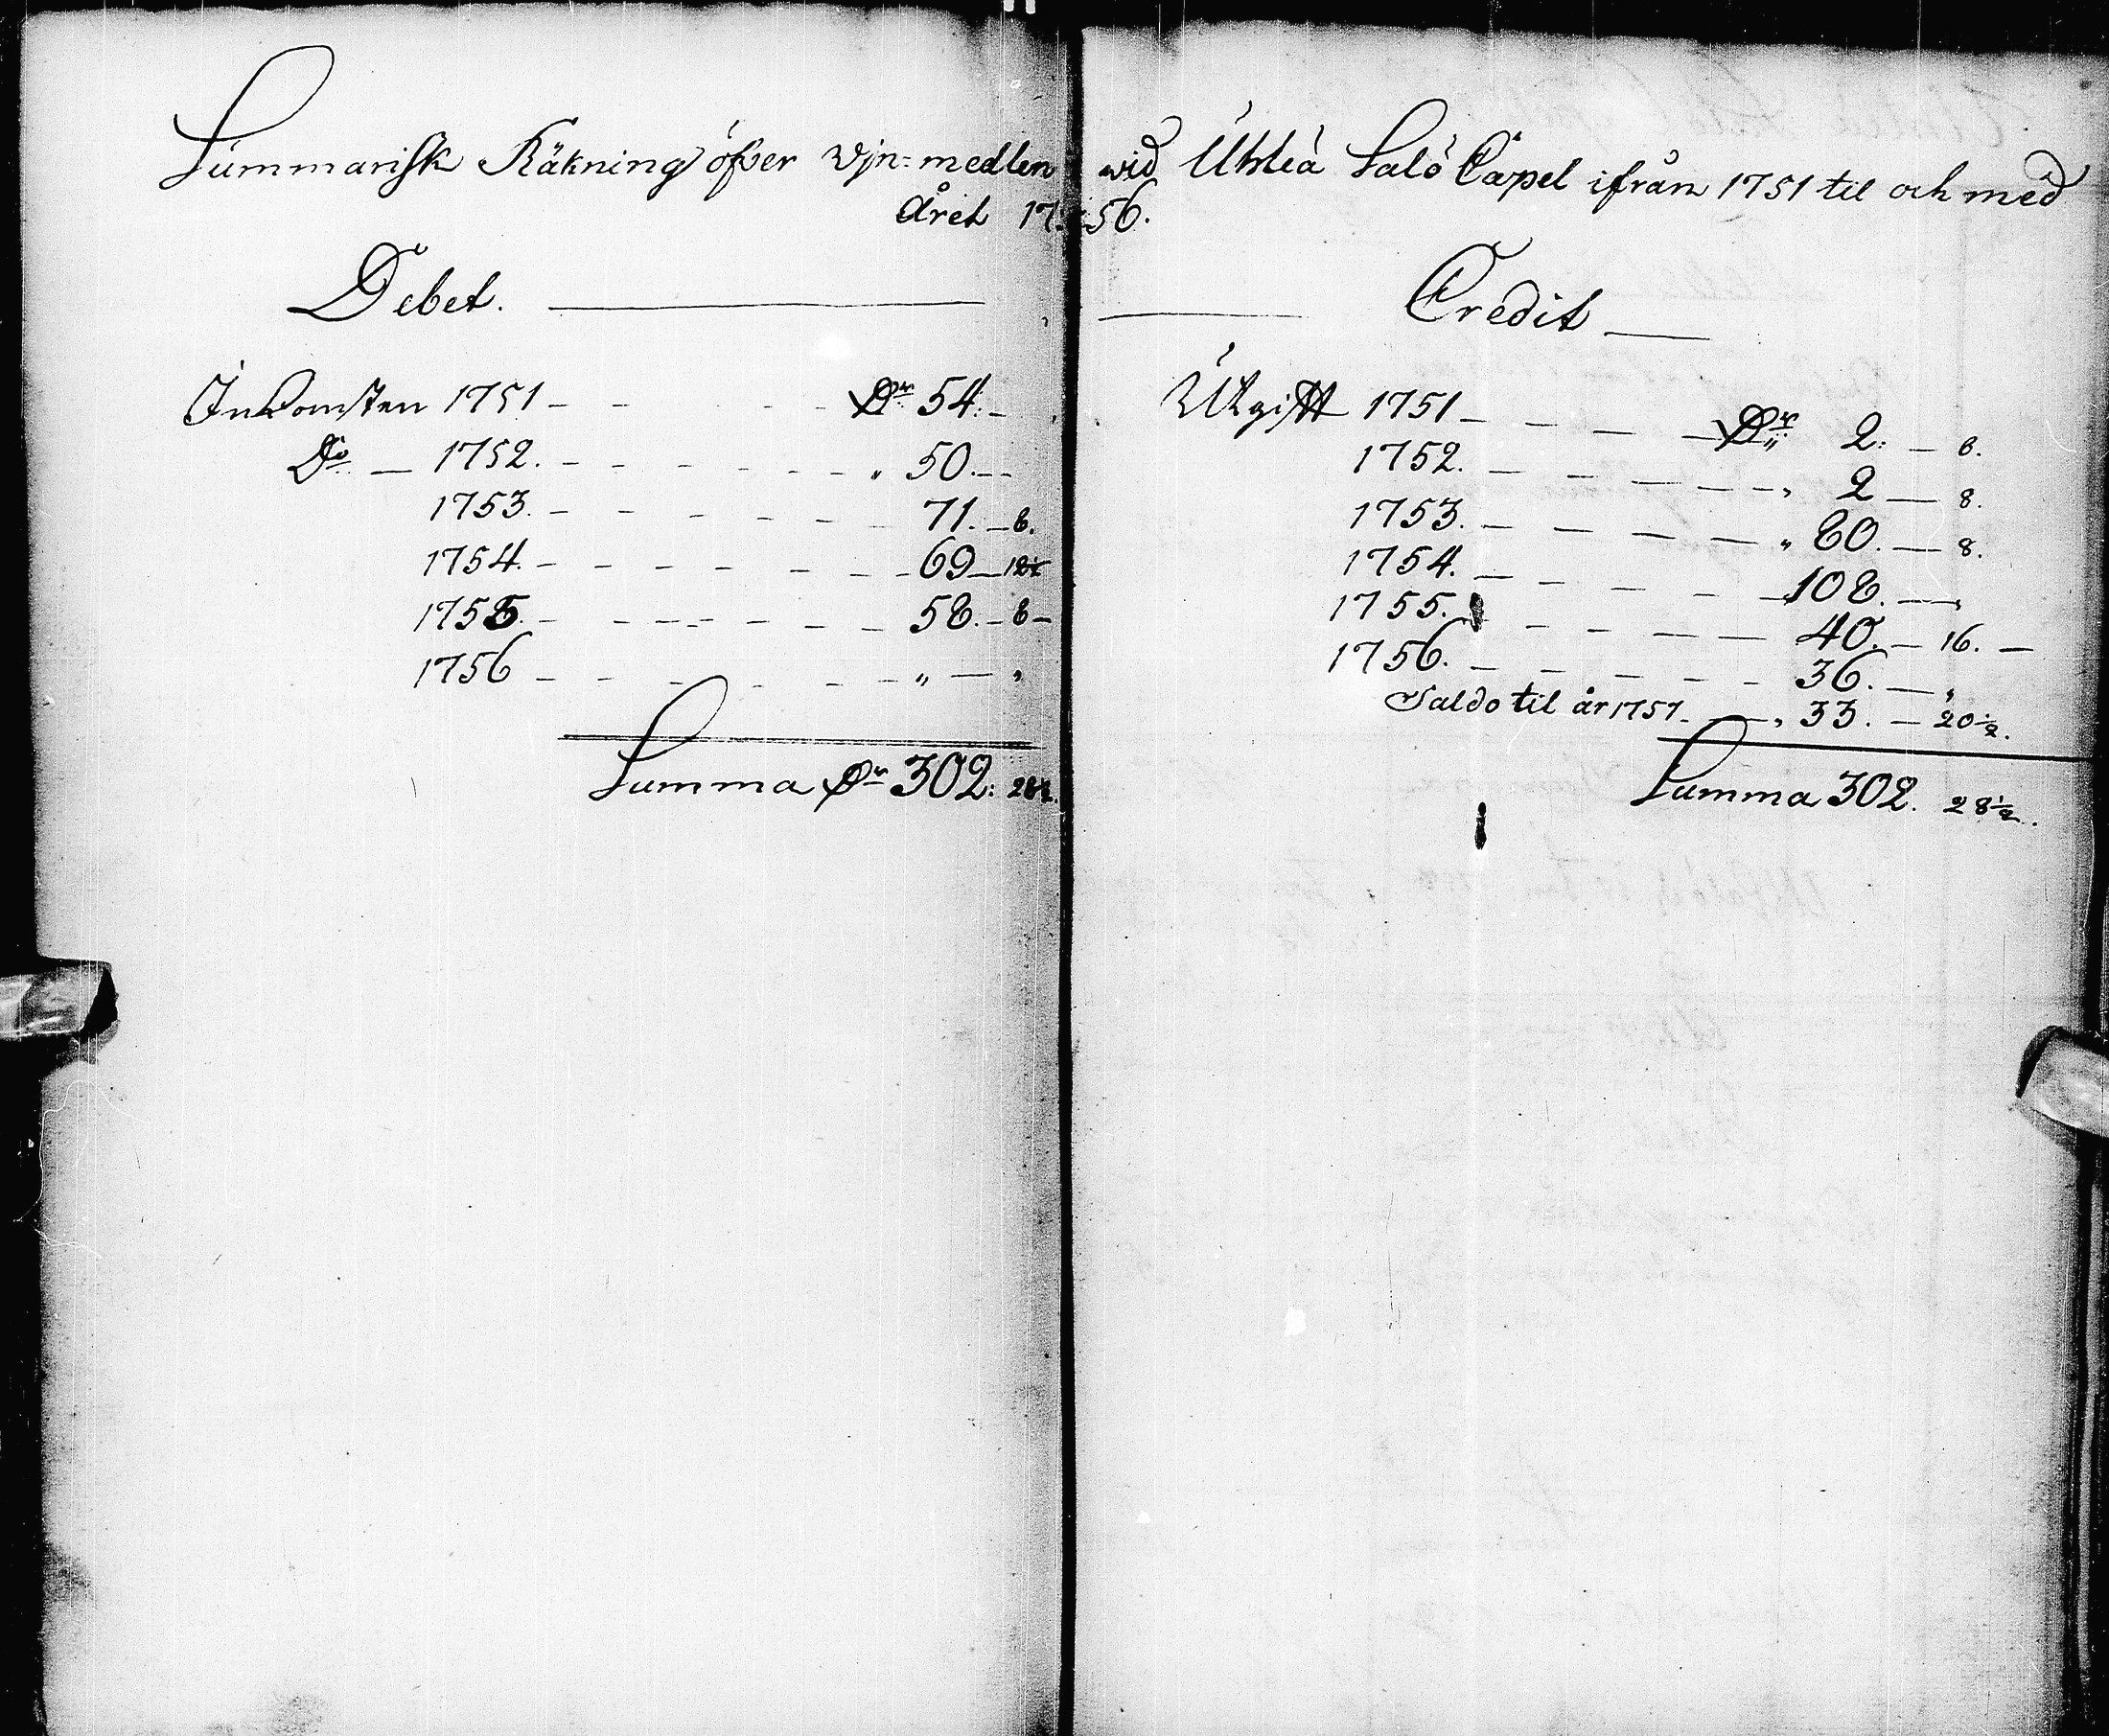 Summarisk Räkning öfver Wjn=medlen wid Uhleå Salo Capel ifrån 1751 til och med
Året 1756.
Debet.
Inkomsten 1751 - - - - - Dr 54:-
Do — 1752. - - - - - - " 50.--
1753. - - - - - - 71.-8.
1754. - - - - - - - 69-12½
1755. - - - - - - - 58.-8-
1756 - - - - - - - " — "
Summa Dr 302: 28½.
Credit
Utgift 1751 - - - - - Dr 2: - 8.
1752. - - - - - - " 2 — 8.
1753. - - - - - " 80. — 8.
1754. - - - - - 108. — "
1755. - - - - - 40. - 16. —
1756. - - - - - - 36. — "
Saldo til år 1757. - — " 33. - 20½.
Summa 302. 28½.